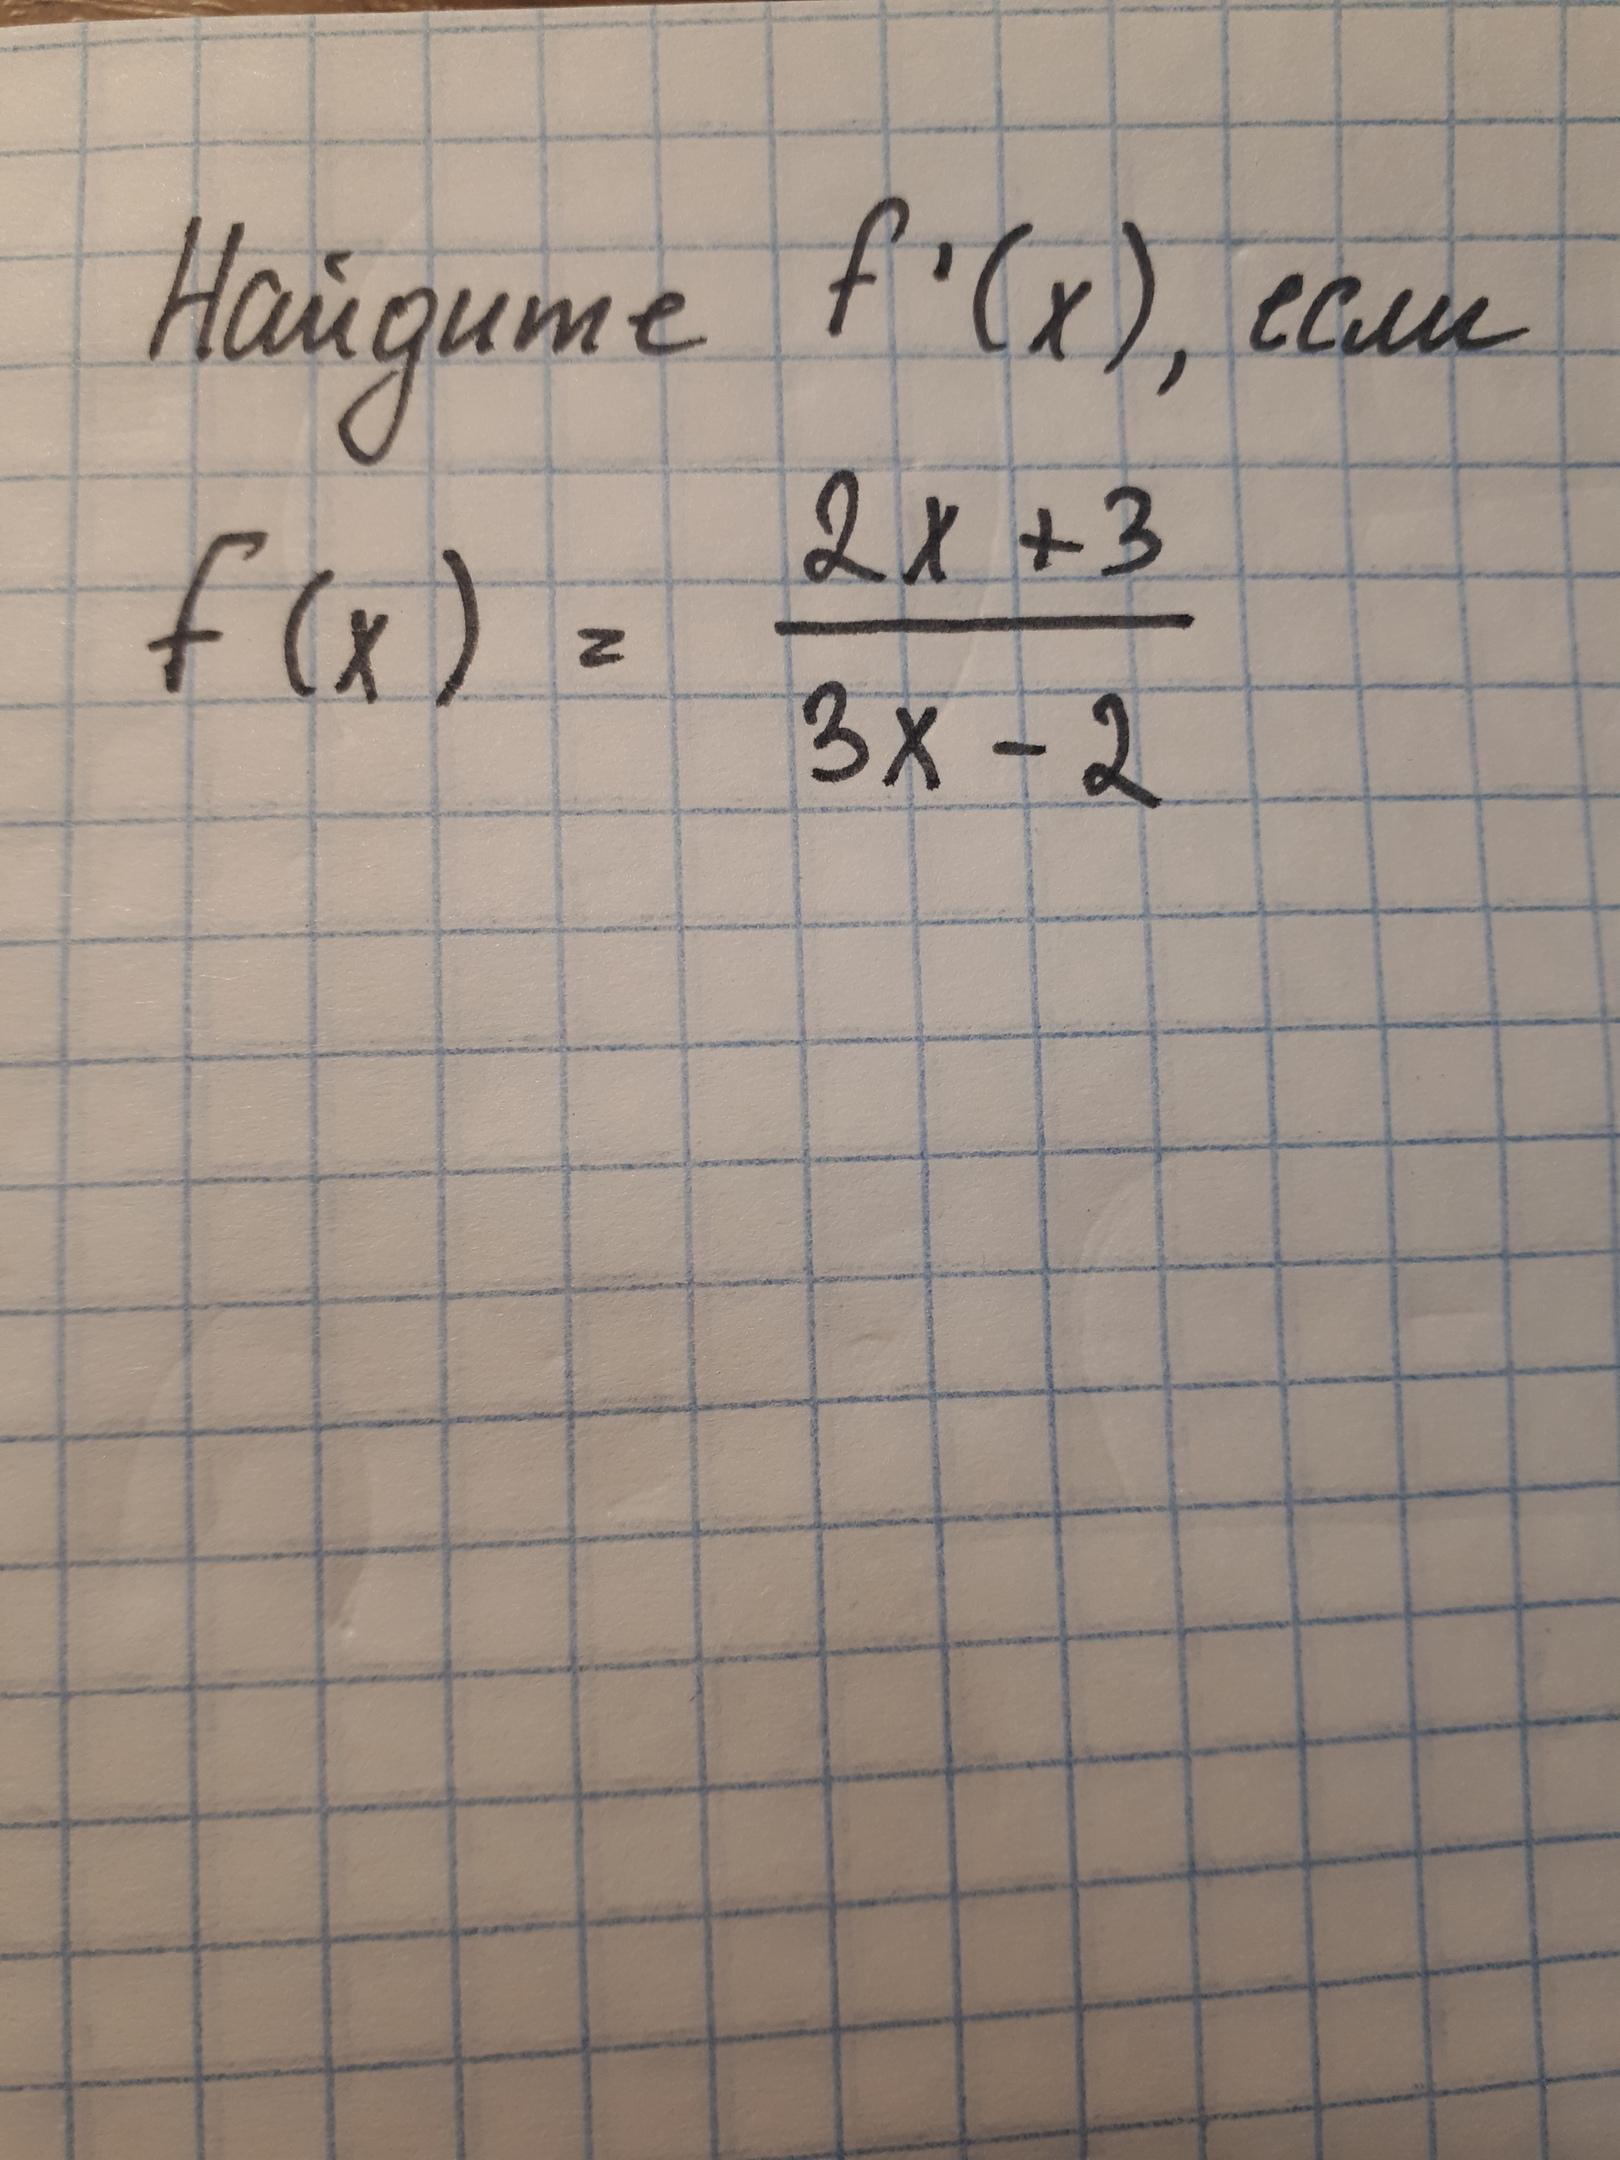 Найдите f'(x), если
f(x) = 2x + 3
3x - 2